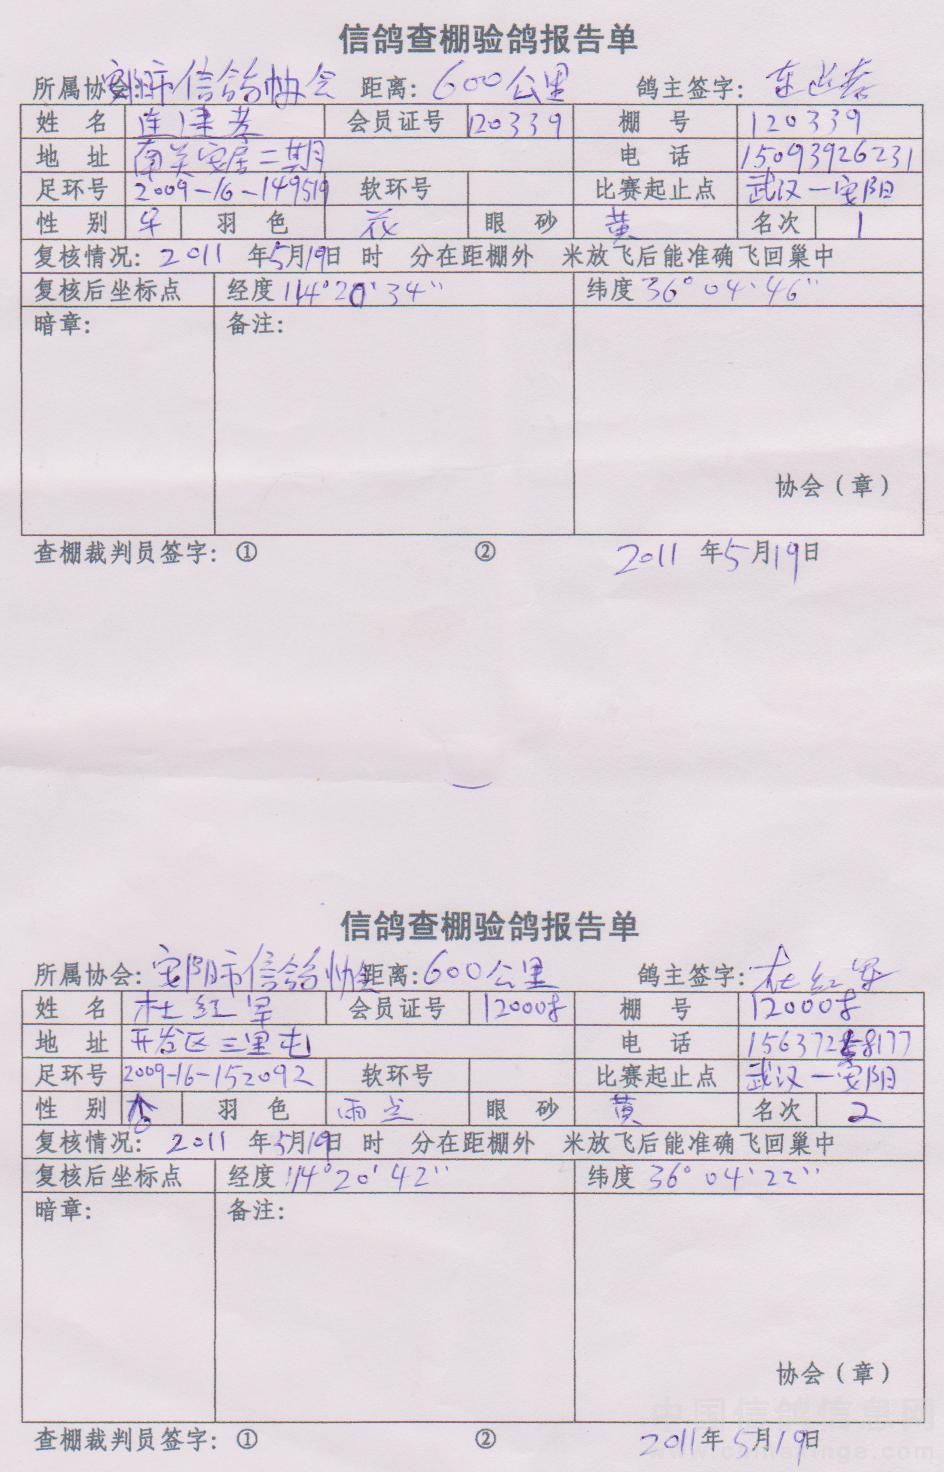 信鸽查棚验鸽报告单
所属协会: 安阳市信鸽协会 距离: 600公里 鸽主签字:
姓 名 连建孝 会员证号 120339 棚 号 120339
地 址 南关安居二期 电 话 15093926231
足环号 2009-16-149519 软环号 比赛起止点 武汉—安阳
性 别 羽 色 花 眼 砂 黄 名次 1
复核情况: 2011 年5月19日 时 分在距棚外 米放飞后能准确飞回巢中
复核后坐标点 经度 114°20′34″ 纬度 36°04′46″
暗章: 备注:
协会(章)
查棚裁判员签字: ① ② 2011 年5月19日
信鸽查棚验鸽报告单
所属协会: 安阳市信鸽协会 距离: 600公里 鸽主签字: 杜红军
姓 名 杜红军 会员证号 棚 号
地 址 开发区三里屯 电 话
足环号 2009-16-152092 软环号 比赛起止点 武汉—安阳
性 别 羽 色 雨点 眼 砂 黄 名次 2
复核情况: 2011 年5月19日 时 分在距棚外 米放飞后能准确飞回巢中
复核后坐标点 经度 114°20′42″ 纬度 36°04′22″
暗章: 备注:
协会(章)
中国信鸽信息网
查棚裁判员签字: ① ② 2011年5月19日